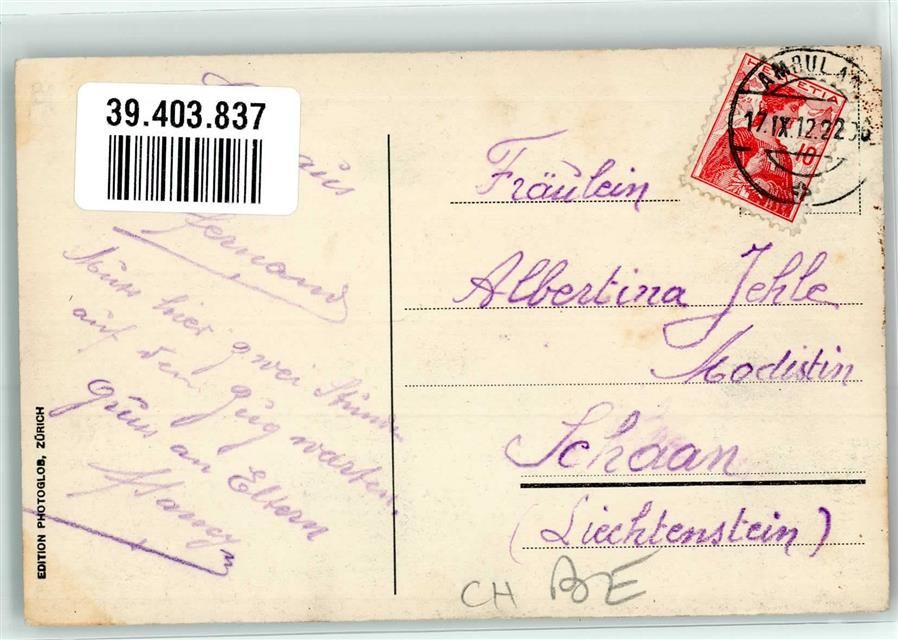 39.403.837
aus
Muss hier zwei Stunden
auf den Zug warten.
Gruss an Eltern
EDITION PHOTOGLOB, ZÜRICH
HELVETIA
10
AMBULAN
17.IX.12.22
Fräulein
Albertina Jehle
Modistin
Schaan
(Liechtenstein)
CH BE